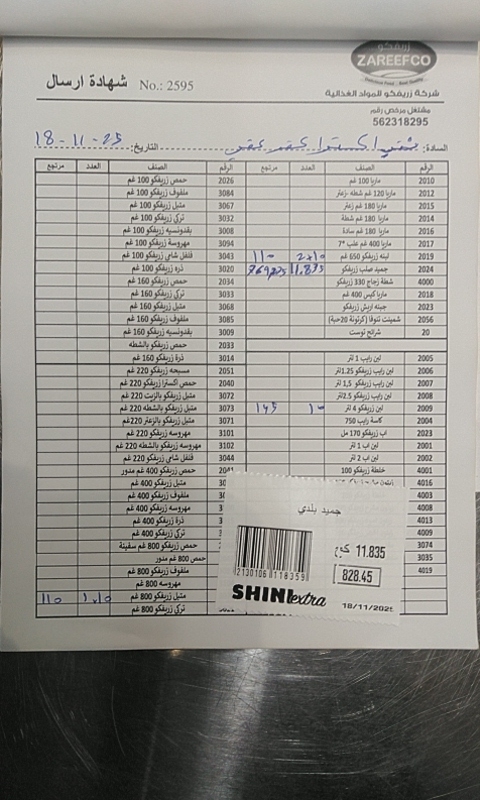 زريفكو
ZAREEFCO
شهادة ارسال No.: 2595
شركة زريفكو للمواد الغذائية
مشتغل مرخص رقم
562318295
السادة: شيني اكسترا كفر عقب التاريخ: 18-11-25
الرقم الصنف العدد مرتجع الرقم الصنف العدد مرتجع
2010 ماريا 100 غم 2026 حمص زريفكو 100 غم
2012 ماريا 120 غم شطة -زعتر 3084 ملفوف زريفكو 100 غم
2015 ماريا 180 غم زعتر 3067 متبل زريفكو 100 غم
2014 ماريا 180 غم شطة 3032 تركي زريفكو 100 غم
2016 ماريا 180 غم سادة 3008 بقدونسيه زريفكو 100 غم
2017 ماريا 400 غم علب *7 3094 مهروسة زريفكو 100 غم
2019 لبنه زريفكو 650 غم 2x10 110 3043 فلفل شامي زريفكو 100 غم
2024 جميد صلب زريفكو 11.835 3020 ذره زريفكو 100 غم
4000 شطة زجاج 330 زريفكو 2034 حمص زريفكو 160 غم
2018 ماريا كيس 400 غم 3033 تركي زريفكو 160 غم
2023 جبنه اريش زريفكو 3068 متبل زريفكو 160 غم
2056 شمينت تنوفا (كرتونة 20حبة) 3085 ملفوف زريفكو 160 غم
20 شرائح توست 3009 بقدونسيه زريفكو 160 غم
2033 حمص زريفكو بالشطه
2005 لبن رايب 1 لتر 3014 ذرة زريفكو 160 غم
2006 لبن رايب زريفكو 1.25لتر 2051 مسبحه زريفكو 220 غم
2007 لبن رايب زريفكو 1,5 لتر 2040 حمص اكسترا زريفكو 220 غم
2008 لبن رايب زريفكو 2.5لتر 3072 متبل زريفكو بالزيت 220 غم
2009 لبن زريفكو 4 لتر 10 145 3073 متبل زريفكو بالشطه 220 غم
2004 كاسة رايب 750 3071 متبل زريفكو بالزعتر 220 غم
2023 اب زريفكو 170 مل 3101 مهروسه زريفكو 220 غم
2001 لبن اب 1 لتر 3102 مهروسه زريفكو بالشطه 220 غم
2002 لبن اب 2 لتر 3044 فلفل شامي زريفكو 220 غم
4001 خلطة زريفكو 100 حمص زريفكو 400 غم مدور
4016 متبل زريفكو 400 غم
4003 ملفوف زريفكو 400 غم
4008 مهروسه زريفكو 400 غم
4013 ذرة زريفكو 400 غم
4009 تركي زريفكو 400 غم
3074 حمص زريفكو 800 غم سفينة
3035 حمص 800 غم مدور
4019 ملفوف زريفكو 800 غم
مهروسه 800 غم
متبل زريفكو 800 غم 1x10 110
تركي زريفكو 800 غم
جميد بلدي
11.835
828.45
2130106 118359
SHINI extra
18/11/2025